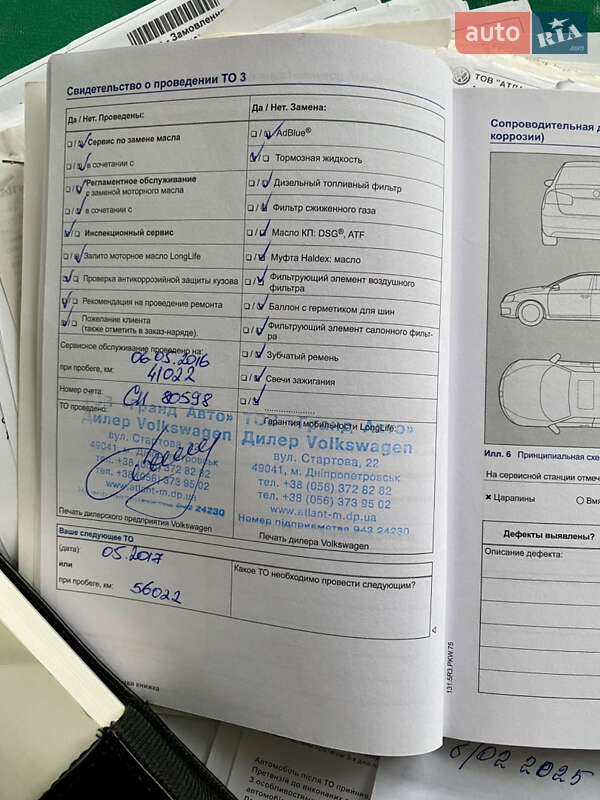 • Замовлення
auto RIA .com
ТОВ "АТЛА
Свидетельство о проведении ТО 3
Да / Нет. Проведены:
Сервис по замене масла
в сочетании с
Регламентное обслуживание
с заменой моторного масла
в сочетании с
Инспекционный сервис
Залито моторное масло LongLife
Проверка антикоррозийной защиты кузова
Рекомендация на проведение ремонта
Пожелание клиента
(также отметить в заказ-наряде).
Сервисное обслуживание проведено на:
06.05.2016
при пробеге, км:
41022
Номер счета:
СЧ 80598
ТО проведено:
Гранд Авто»
Дилер Volkswagen
вул. Стартова,
49041, м. Дніпропетровськ
тел. +38 (056) 372 82 82
тел. +38 (056) 373 95 02
www.atlant-m.dp.ua
943 24230
Печать дилерского предприятия Volkswagen
Ваше следующее ТО
(дата):
05.2017
или
при пробеге, км:
56022
Да / Нет. Замена:
AdBlue®
Тормозная жидкость
Дизельный топливный фильтр
Фильтр сжиженного газа
Масло КП: DSG®, ATF
Муфта Haldex: масло
Фильтрующий элемент воздушного
фильтра
Баллон с герметиком для шин
Фильтрующий элемент салонного фильт-
ра
Зубчатый ремень
Свечи зажигания
Гарантия мобильности LongLife:
Гранд Авто»
Дилер Volkswagen
вул. Стартова, 22
49041, м. Дніпропетровськ
тел. +38 (056) 372 82 82
тел. +38 (056) 373 95 02
www.atlant-m.dp.ua
Номер підприємства 943 24230
Печать дилера Volkswagen
Какое ТО необходимо провести следующим?
ная книжка
131.5R3.PKW.75
Сопроводительная д
коррозии)
Илл. 6 Принципиальная схе
На сервисной станции отмеч
× Царапины
Вмя
Дефекты выявлены?
Описание дефекта:
02 2025
Автомобіль після ТО прийняв
Претензія до виконаних
З особливостями
автомобіл